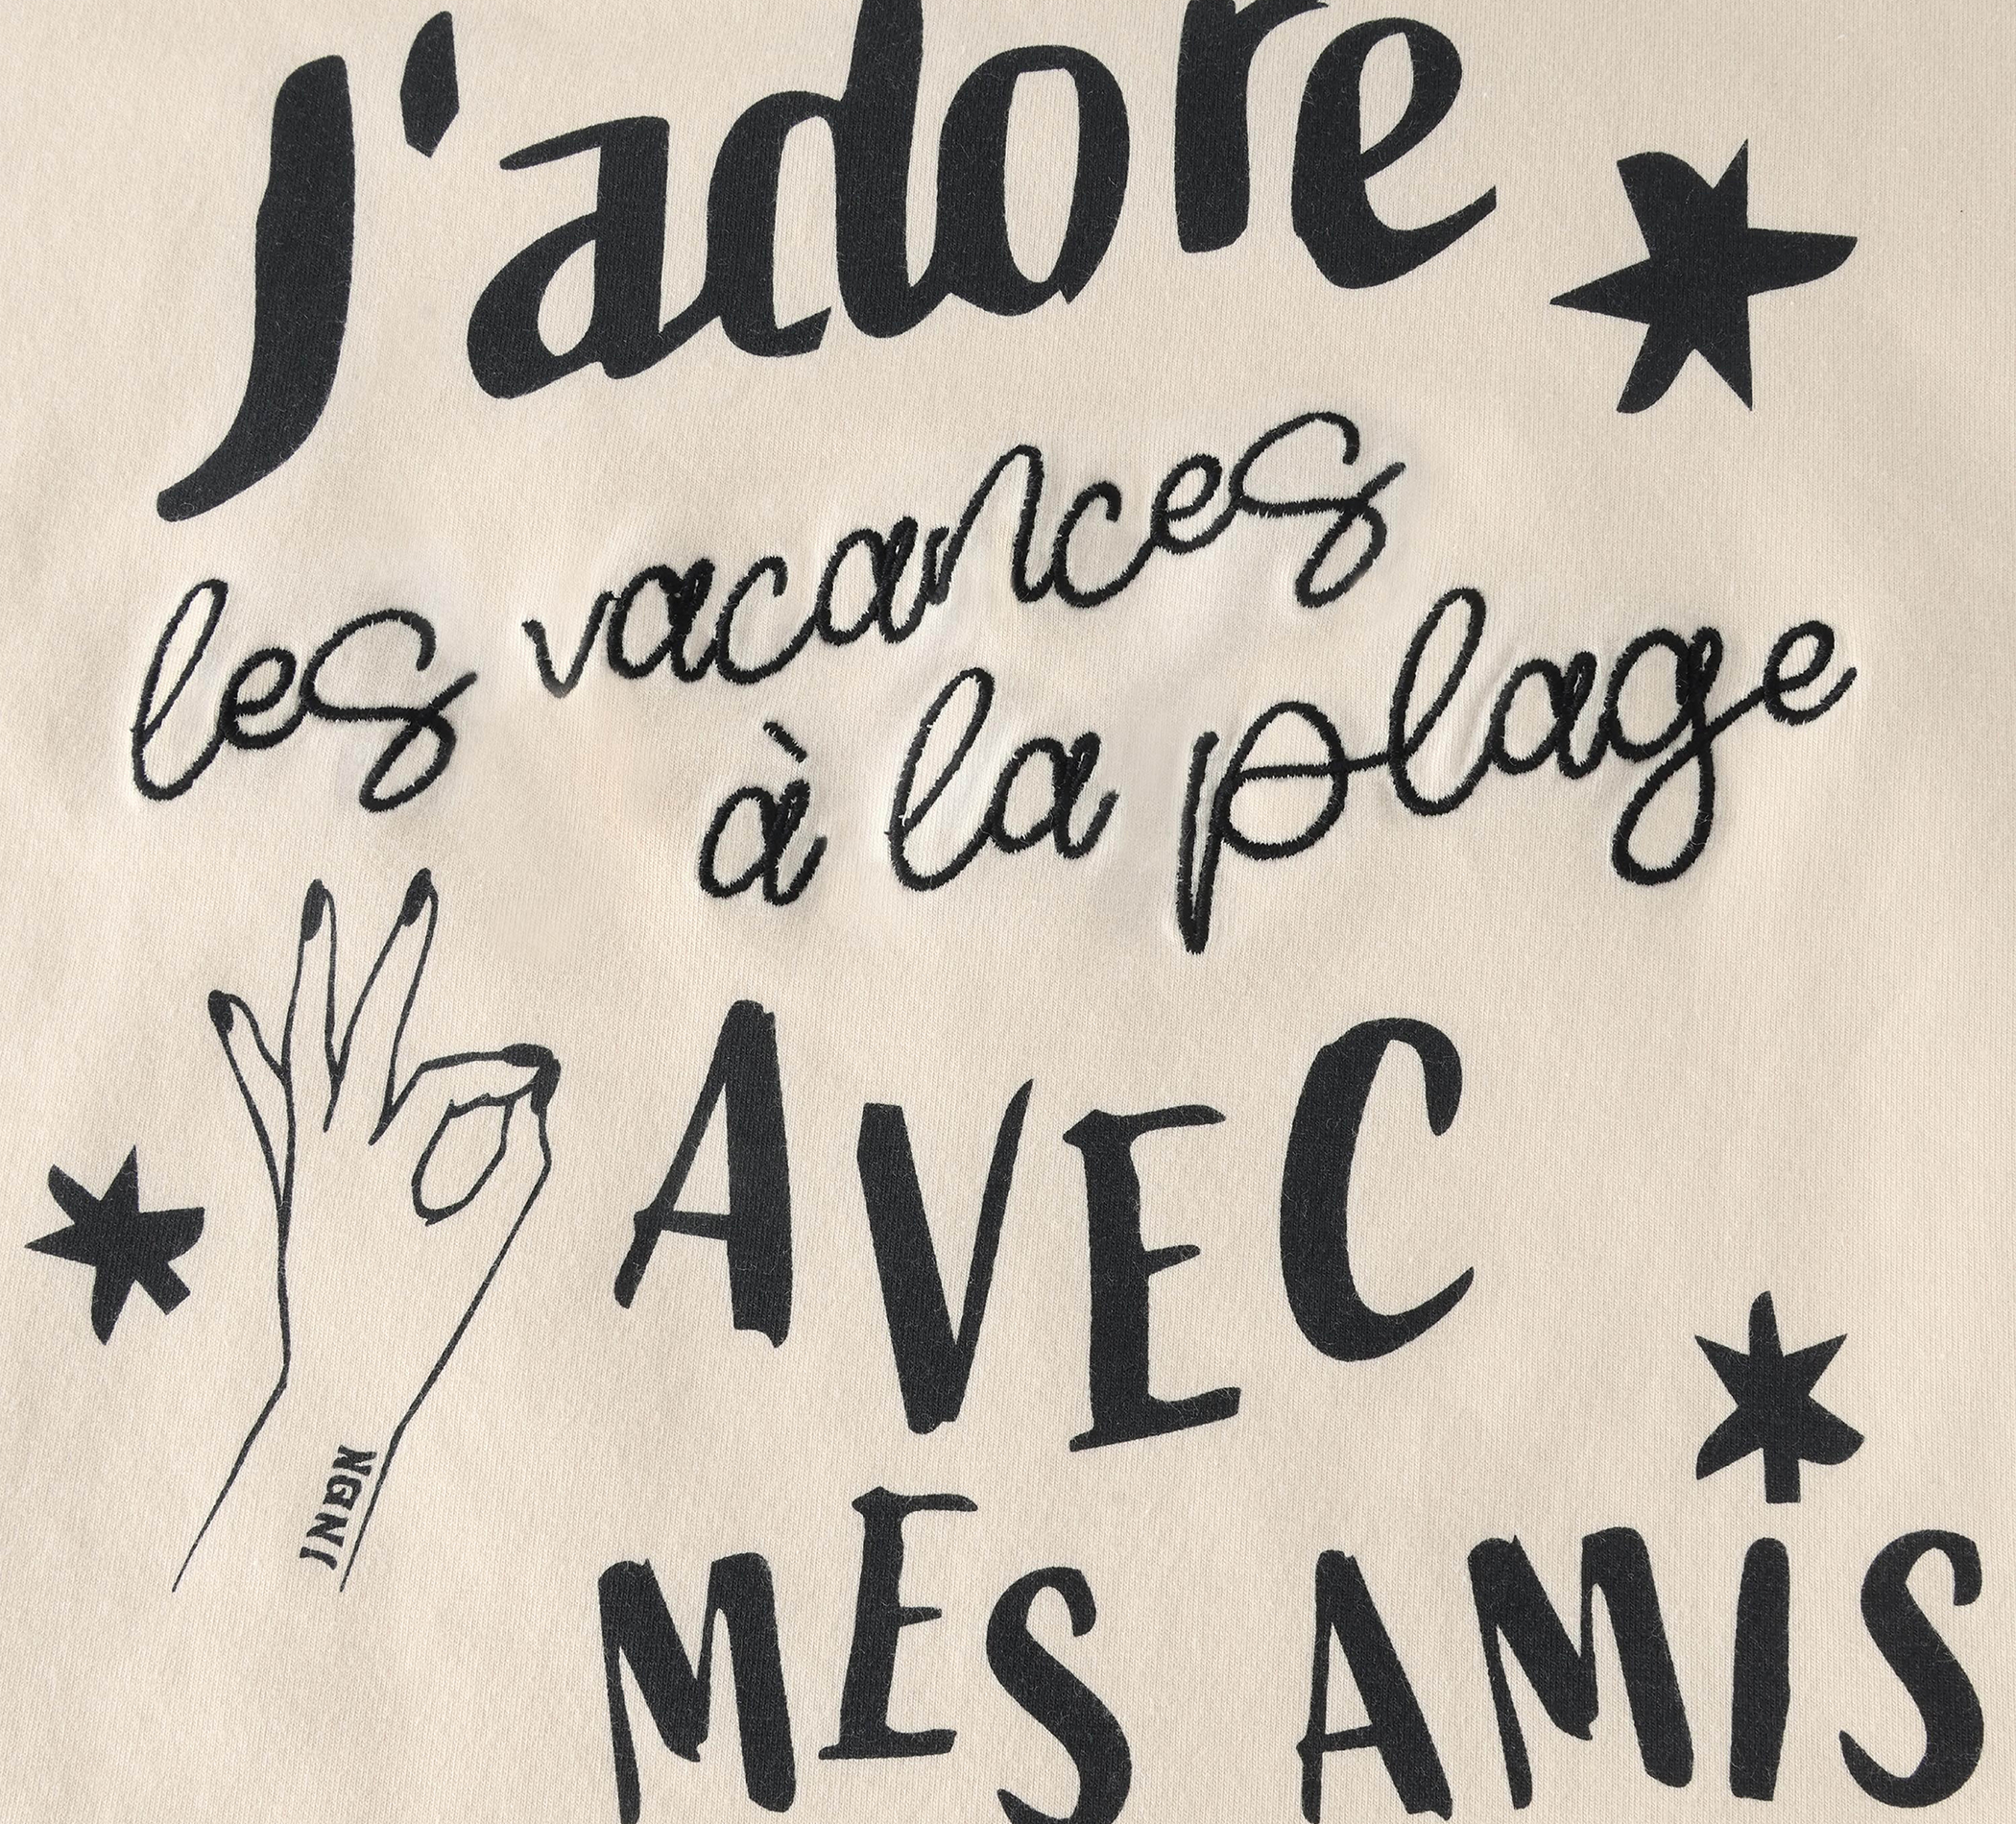 J'adore
les vacances
à la plage
AVEC
MES AMIS